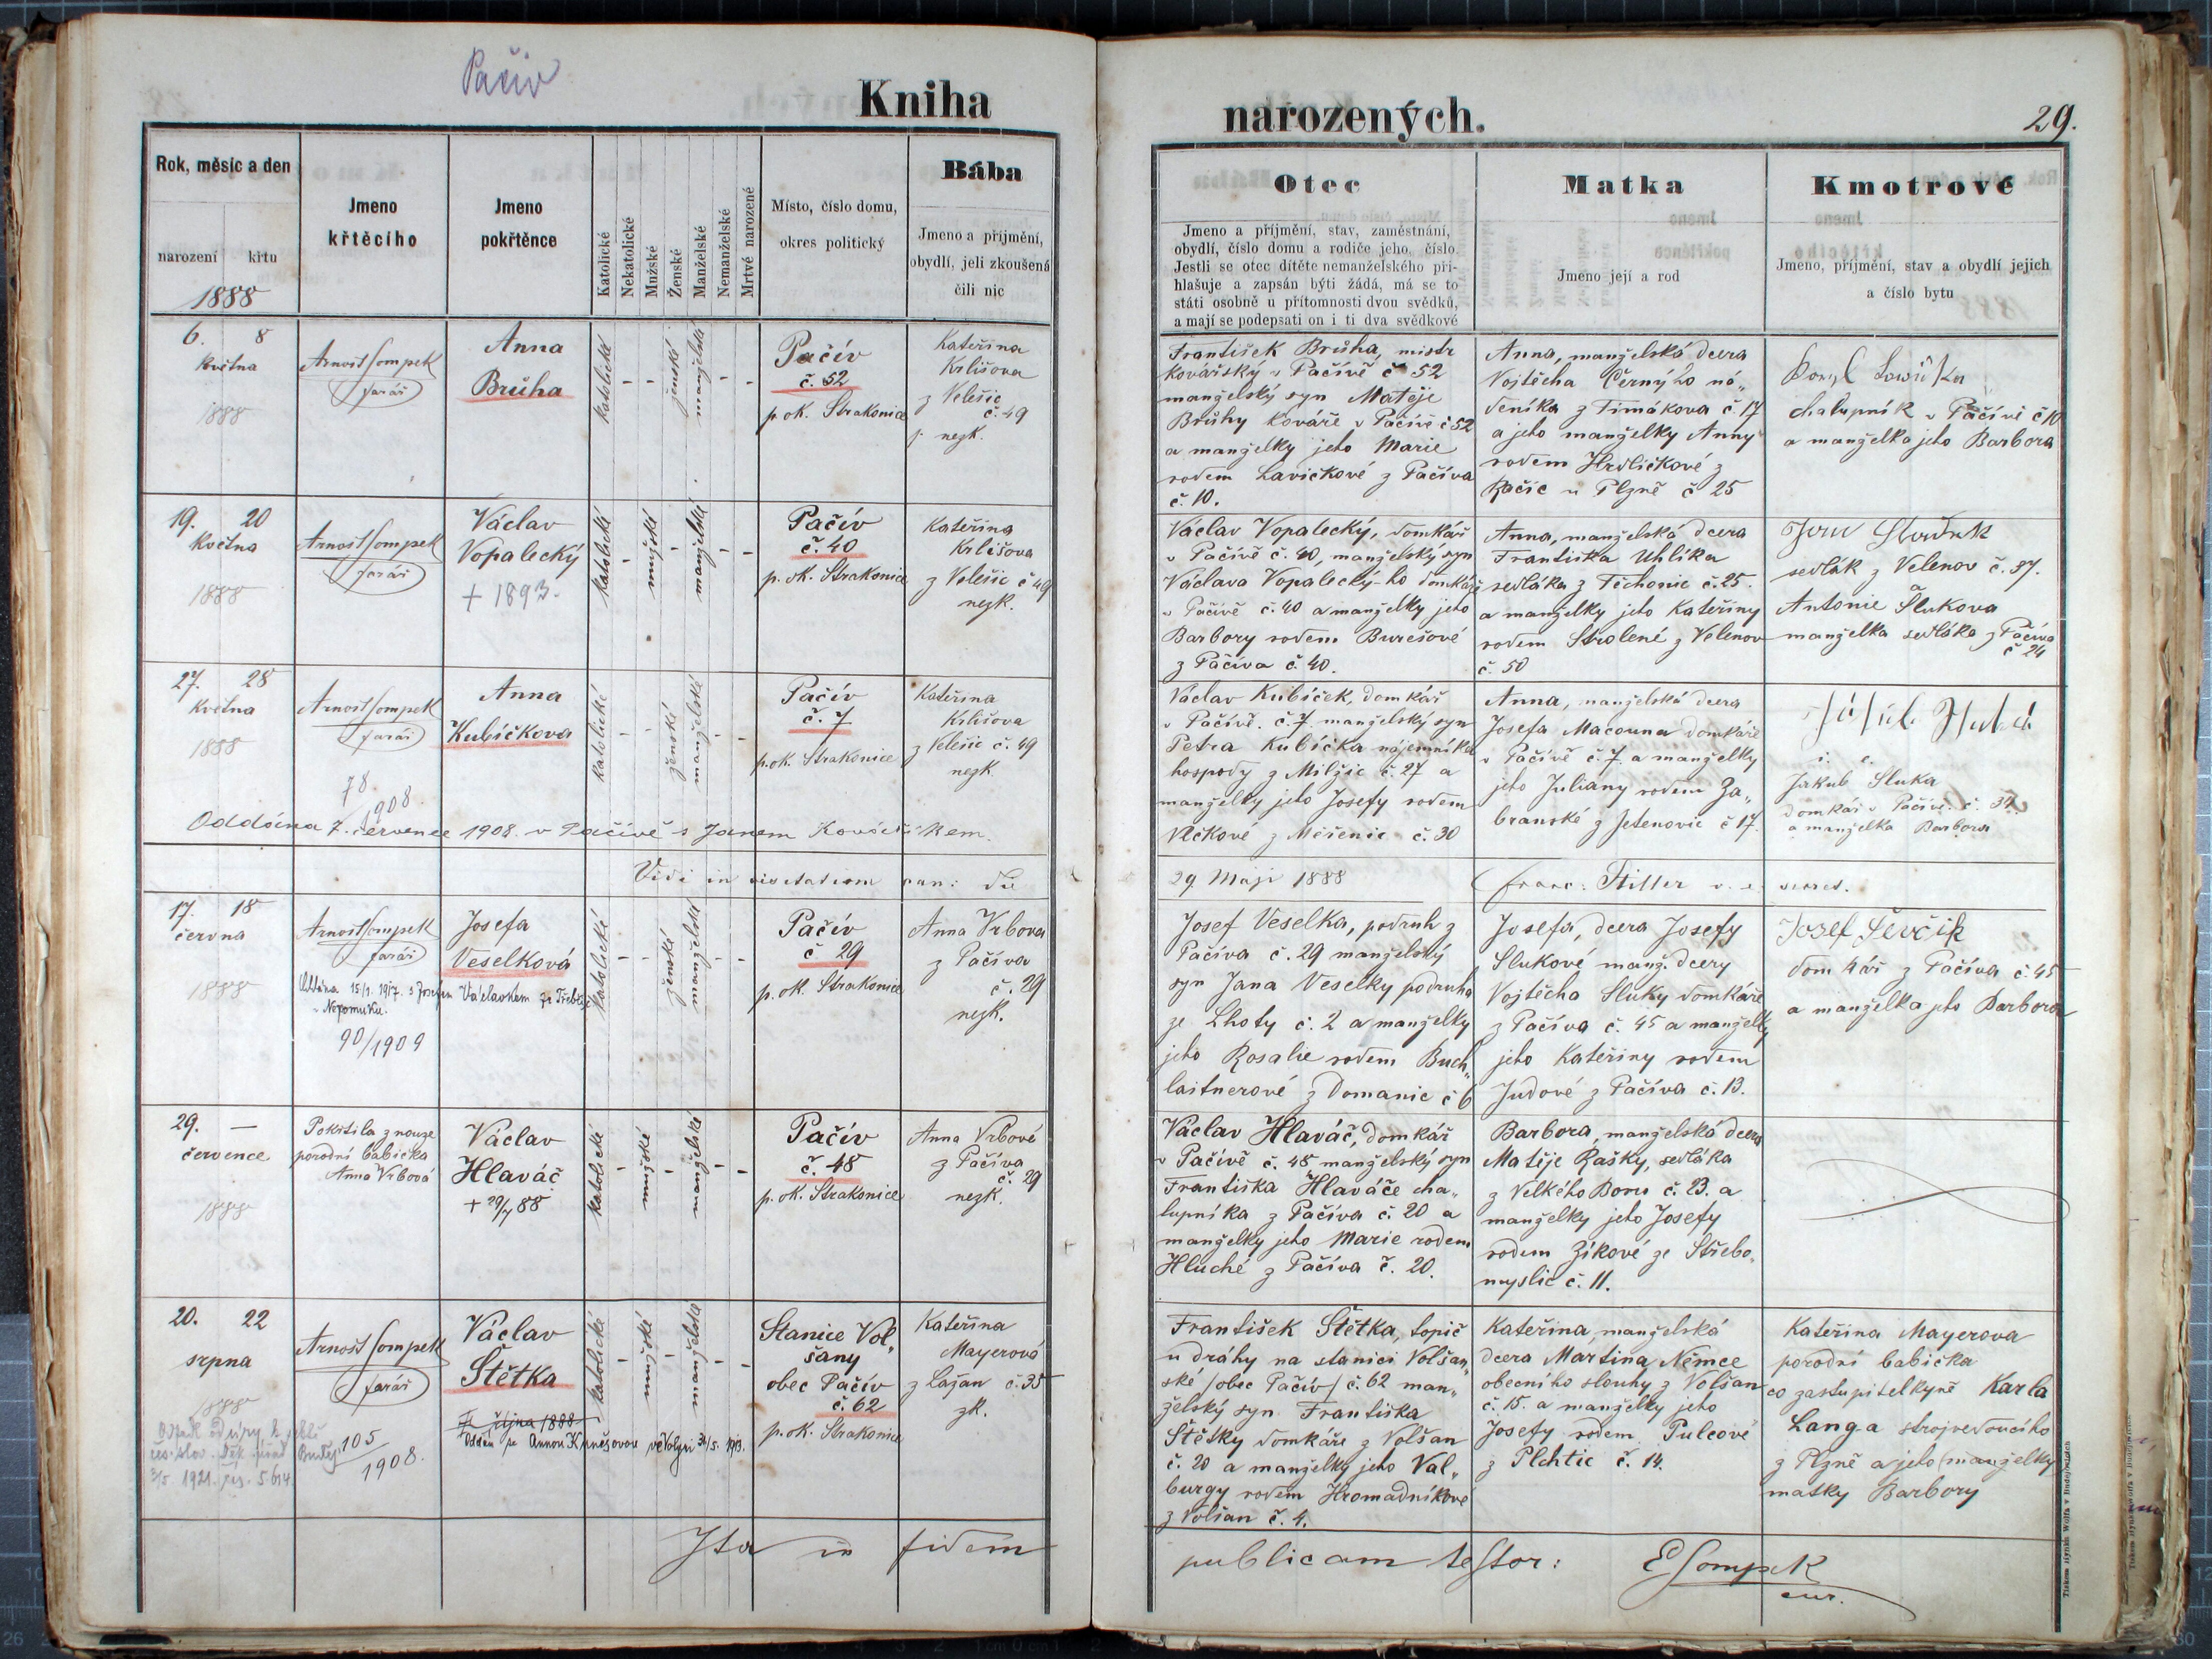 Pačiv
Kniha
narozených.
29.
Rok, měsíc a den
narození křtu
1888
Jmeno
křtěcího
Jmeno
pokřtěnce
Katolické
Nekatolické
Mužské
Ženské
Manželské
Nemanželské
Mrtvé narozené
Místo, číslo domu,
okres politický
Bába
Jmeno a příjmění,
obydlí, jeli zkoušená
čili nic
Otec
Jmeno a příjmění, stav, zaměstnání,
obydlí, číslo domu a rodiče jeho, číslo.
Jestli se otec dítěte nemanželského při-
hlašuje a zapsán býti žádá, má se to
státi osobně u přítomnosti dvou svědků,
a mají se podepsati on i ti dva svědkové
Matka
Jmeno její a rod
Kmotrové
Jmeno, příjmění, stav a obydlí jejich
a číslo bytu
6. 8
května
1888
Arnošt Sompek
farář
Anna
Brůha
katolické
ženské
manželské
Pačív
č. 52
p. ok. Strakonice
Kateřina
Krlišova
z Velešic
č. 49
nezk.
František Brůha, mistr
kovářský v Pačívě č 52
manželský syn Matěje
Brůhy kováře v Pačívě č 52
a manželky jeho Marie
rodem Lavičkové z Pačíva
č. 10.
Anna, manželská dcera
Vojtěcha Černýho ná„
deníka z Timákova č. 17
a jeho manželky Anny
rodem Hrdličkové z
Račic u Plzně č 25
chalupník v Pačívě č 10
a manželka jeho Barbora
19. 20
května
1888
Arnošt Sompek
farář
Václav
Vopalecký
+ 1893.
katolické
mužské
manželské
Pačív
č. 40
p. ok. Strakonice
Kateřina
Krlišova
z Velešic č 49
nezk.
Václav Vopalecký, domkář
v Pačívě č. 40, manželský syn
Václava Vopalecký-ho domkáře
v Pačívě č. 40 a manželky jeho
Barbory rodem Burešové
z Pačíva č. 40.
Anna, manželská dcera
Františka Uhlíka
sedláka z Těchonic č. 25.
a manželky jeho Kateřiny
rodem Strolené z Velenov
č. 50
sedlák z Velenov č. 37.
Antonie Slukova
manželka sedláka z Pačíva
č 24
27. 28
května
1888
Arnošt Sompek
farář
78
1908.
Anna
Kubíčkova
katolické
ženské
manželské
Pačív
č. 7
p. ok. Strakonice
Kateřina
Krlišova
z Velešic č. 49
nezk.
Oddána 7. července 1908. v Pačívě s Janem Kováčíkem.
Václav Kubíček, domkář
v Pačívě. č. 7. manželský syn
Petra Kubíčka nájemníka
hospody z Milžic č. 27 a
manželky jeho Josefy rodem
Vlčkové z Měčenic č. 30
Anna, manželská dcera
Josefa Macouna domkáře
v Pačívě č. 7. a manželky
jeho Juliany rodem Za„
branské z Jetenovic č 17.
Jakub Sluka
domkář v Pačívě. č. 34.
a manželka Barbora
Vidi in visitatiom can: die
29 Maji 1888
Franc: Stiller v. e. secret.
17. 18
června
1888
Arnošt Sompek
farář
Oddána 15/1. 1917. s Josefem Václavkem ze Třebčic
v Nepomuku.
90/1909
Josefa
Veselková
katolické
ženské
manželské
Pačív
č 29
p. ok. Strakonice
Anna Vrbova
z Pačíva
č. 29
nezk.
Josef Veselka, podruh z
Pačíva č. 29 manželský
syn Jana Veselky podruha
ze Lhoty č. 2 a manželky
jeho Rosalie rodem Buch„
laitnerové z Domanic č 6
Josefa, dcera Josefy
Slukové manž. dcery
Vojtěcha Sluky domkáře
z Pačíva č. 45 a manželky
jeho Kateřiny rodem
Judové z Pačíva č. 13.
Josef Ševčik
domkář z Pačíva č. 45
a manželka jeho Barbora
29. —
července
1888
Pokřtila z nouze
porodní babička
Anna Vrbová
Václav
Hlaváč
+ 29/7 88
katolické
mužské
manželské
Pačív
č. 48
p. ok. Strakonice
Anna Vrbové
z Pačíva
č. 29
nezk.
Václav Hlaváč, domkář
v Pačívě č. 48 manželský syn
Františka Hlaváče cha„
lupníka z Pačíva č. 20 a
manželky jeho Marie rodem
Hluché z Pačíva č. 20.
Barbora, manželská dcera
Matěje Rašky, sedláka
z Velkého Boru č. 23. a
manželky jeho Josefy
rodem Zíkové ze Střebo„
myslic č. 11.
20. 22
srpna
1888
Arnošt Sompek
farář
105
1908.
Václav
Štětka
října 1888
Oddán se Annou Kunešovou ve Volyni 31/5. 1913.
katolické
mužské
manželské
Stanice Vol„
šany
obec Pačív
č. 62
p. ok. Strakonice
Kateřina
Mayerová
z Lažan č. 35
zk.
František Štětka, topič
u dráhy na stanici Volšan„
ské /obec Pačív/ č. 62 man„
želský syn Františka
Štětky domkáře z Volšan
č. 20 a manželky jeho Val„
burgy rodem Hromadníkové
z Volšan č. 4.
Kateřina, manželská
dcera Martina Němce
obecního slouhy z Volšan
č. 15. a manželky jeho
Josefy rodem Pulcové
z Plchtic č. 14.
Kateřina Mayerova
porodní babička
co zastupitelkyně Karla
Langa strojvedoucího
z Plzně a jeho manželky
matky Barbory
Ita in fidem
publicam testor:
E Sompek
cur.